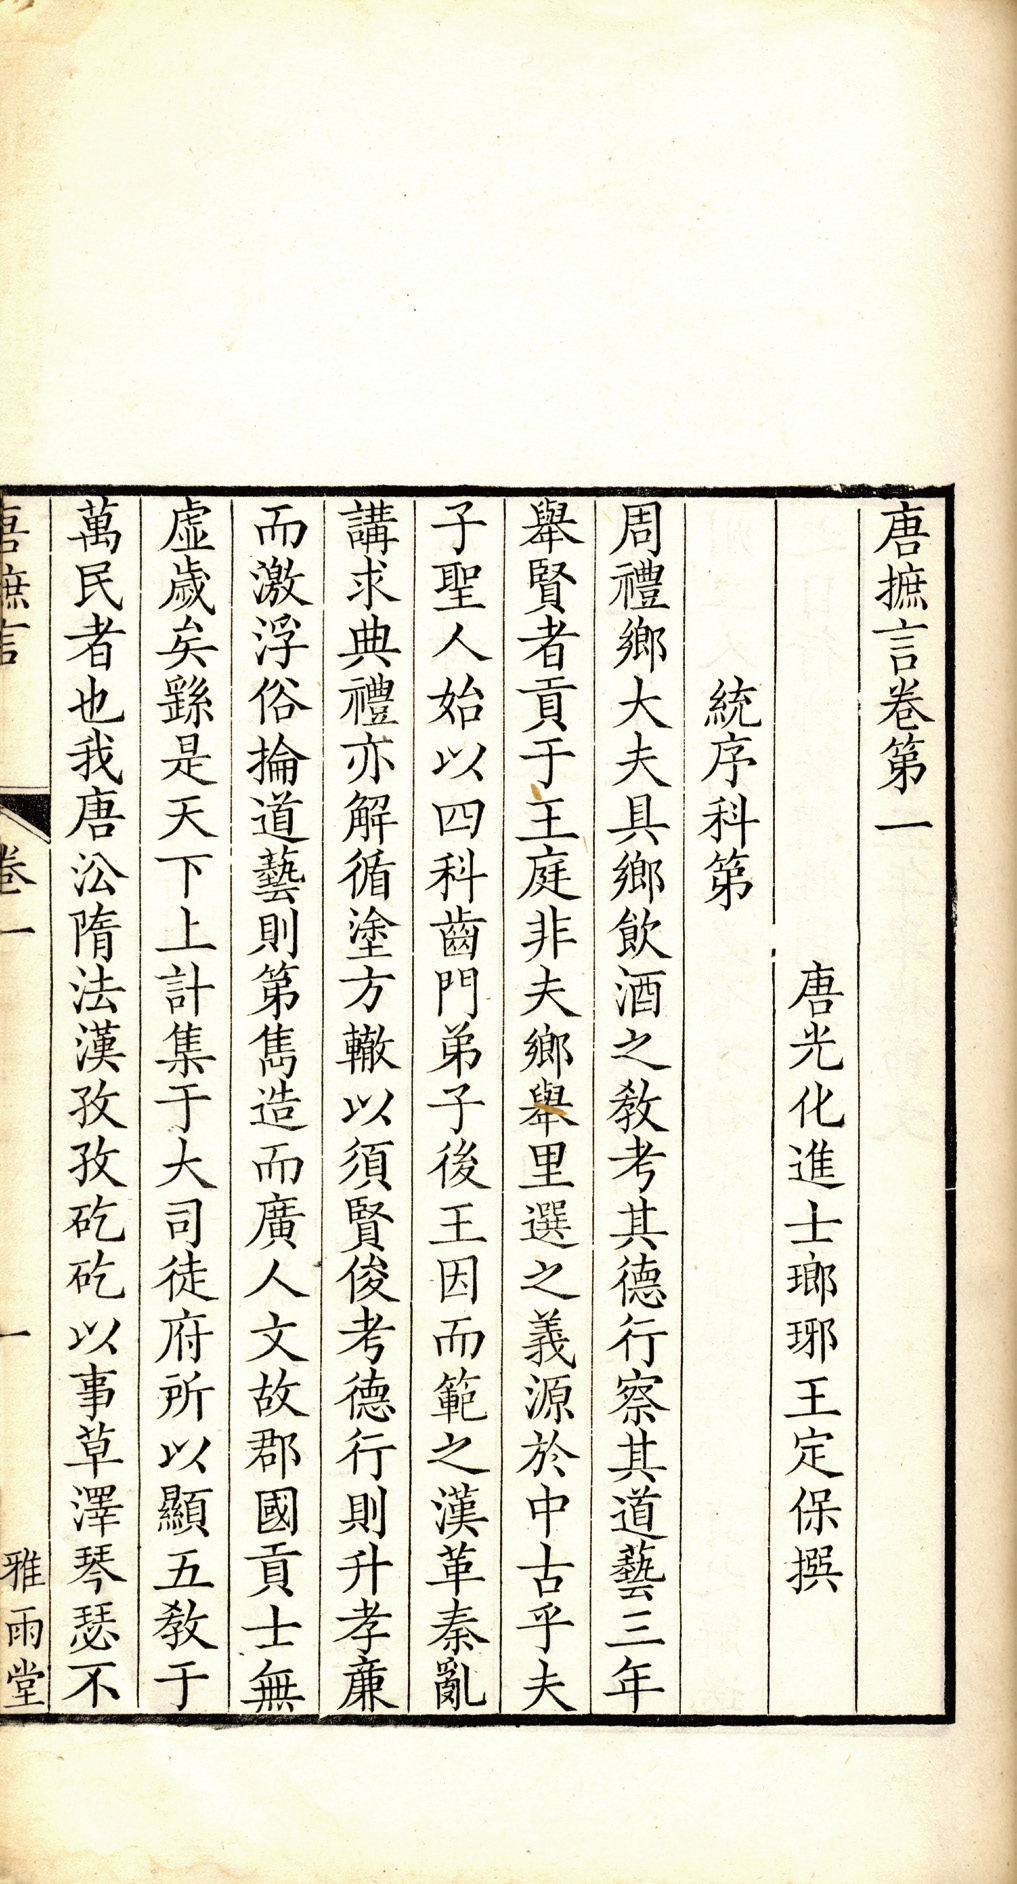 唐摭言卷第一
唐光化進士瑯琊王定保撰
統序科第
周禮鄉大夫具鄉飲酒之敎考其德行察其道藝三年
舉賢者貢于王庭非夫鄉舉里選之義源於中古乎夫
子聖人始以四科齒門弟子後王因而範之漢革秦亂
講求典禮亦解循塗方轍以須賢俊考德行則升孝亷
而激浮俗掄道藝則第雋造而廣人文故郡國貢士無
虛歲矣繇是天下上計集于大司徒府所以顯五敎于
萬民者也我唐㳂隋法漢孜孜矻矻以事草澤琴瑟不
唐摭言 卷一 一 雅雨堂